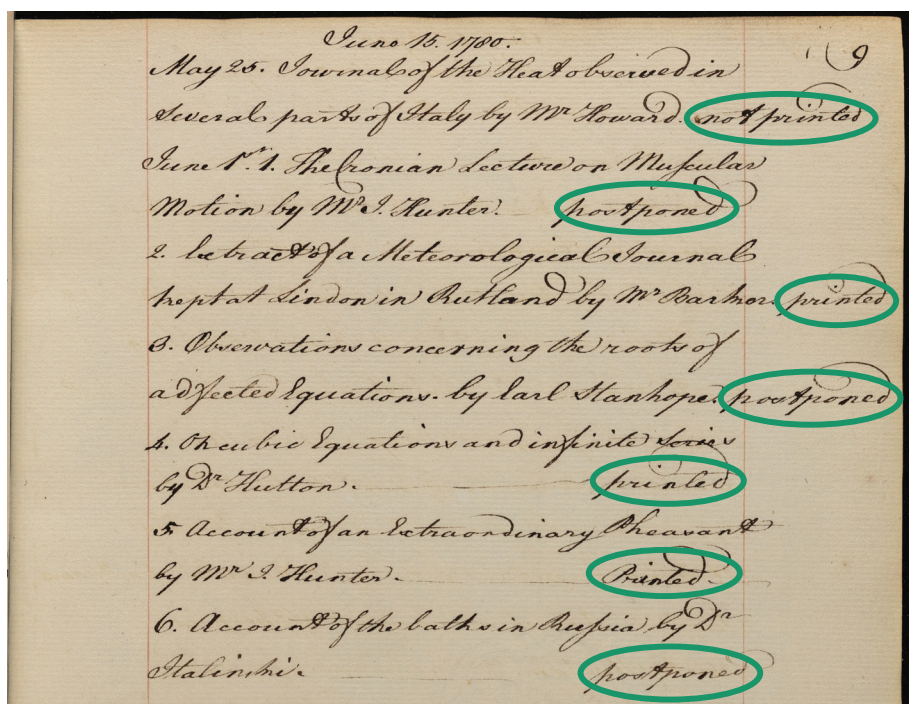 June 15. 1780.
9
May 25. Journal of the Heat observed in
several parts of Italy by Mr Howard. not printed
June 1st. 1. The Cronian Lecture on Muscular
Motion by Mr J. Hunter. postponed
2. Extract of a Meteorological Journal
kept at Lindon in Rutland by Mr Barker. printed
3. Observations concerning the roots of
adfected Equations. by Earl Stanhope. postponed
4. On cubic Equations and infinite series
by Dr Hutton. printed
5. Account of an Extraordinary Pheasant
by Mr J. Hunter. Printed.
6. Account of the baths in Russia by Dr
Italinski. postponed